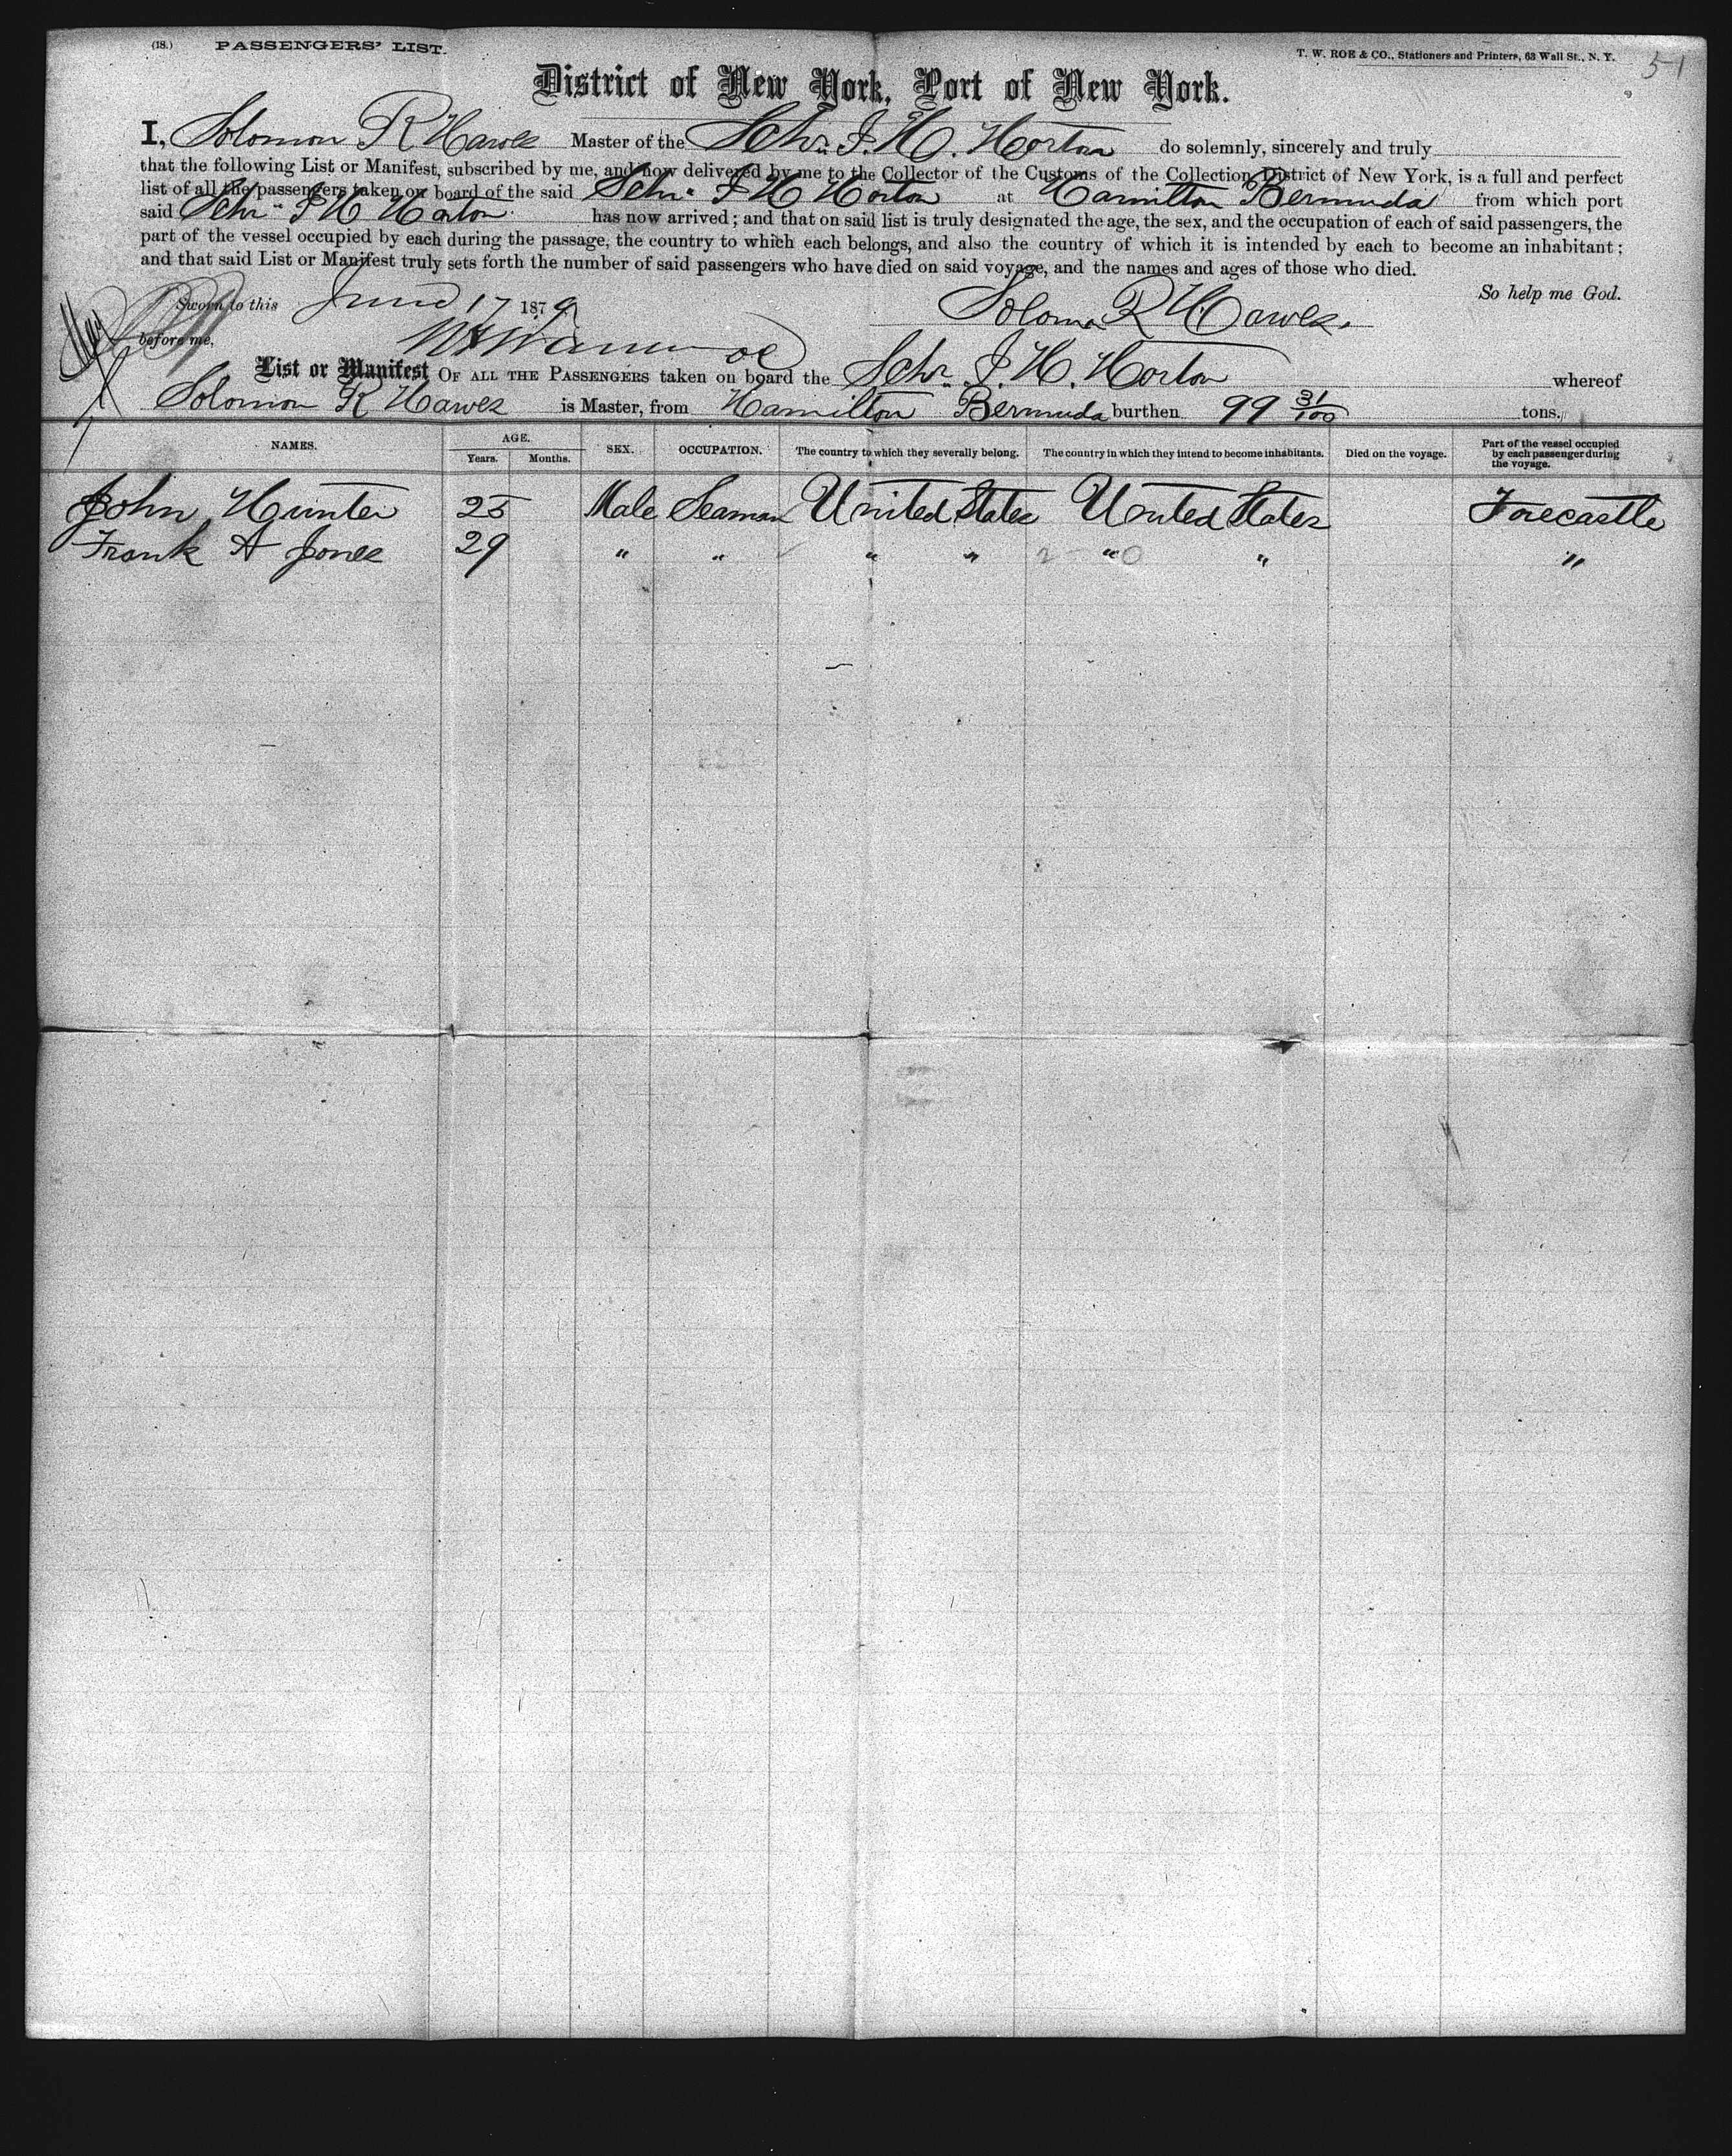 (18.) PASSENGERS' LIST. T. W. ROE & CO., Stationers and Printers, 63 Wall St., N. Y. 51
District of New York, Port of New York.
I, Solomon R Hawes Master of the Schr. J. H. Horton do solemnly, sincerely and truly
that the following List or Manifest, subscribed by me, and now delivered by me to the Collector of the Customs of the Collection District of New York, is a full and perfect
list of all the passengers taken on board of the said Schr. J H Horton at Hamilton Bermuda from which port
said Schr J H Horton has now arrived; and that on said list is truly designated the age, the sex, and the occupation of each of said passengers, the
part of the vessel occupied by each during the passage, the country to which each belongs, and also the country of which it is intended by each to become an inhabitant;
and that said List or Manifest truly sets forth the number of said passengers who have died on said voyage, and the names and ages of those who died.
So help me God.
Sworn to this June 17 1879 Solomon R Hawes.
before me,
List or Manifest OF ALL THE PASSENGERS taken on board the Schr. J. H. Horton whereof
Solomon R Hawes is Master, from Hamilton Bermuda burthen 99 31/100 tons.
NAMES. AGE. Years. Months. SEX. OCCUPATION. The country to which they severally belong. The country in which they intend to become inhabitants. Died on the voyage. Part of the vessel occupied by each passenger during the voyage.
John Hunter 25 Male Seaman United States United States Forecastle
Frank A Jones 29 " " " " " " "